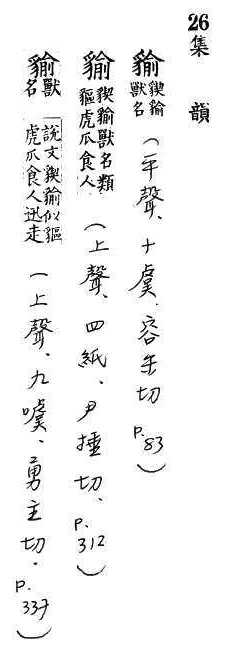 26集韻
貐䝟貐獸名(平聲、十虞.容朱切 P.83)
貐䝟貐獸名類貙虎爪食人(上聲、四紙、尹捶切、P.312)
貐獸名說文䝟貐似貙虎爪食人迅走(上聲、九噳、勇主切.P.337)